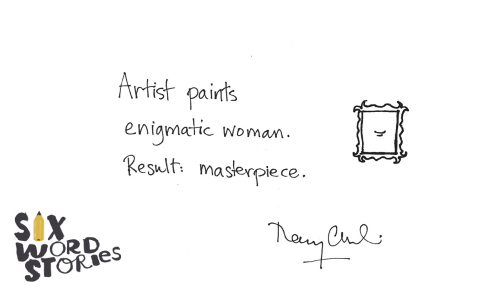 Artist paints
enigmatic woman.
Result: masterpiece.
SIX
WORD
STORIES